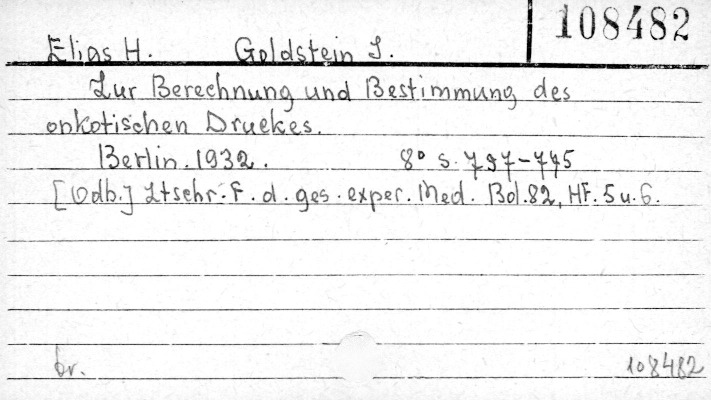 108482
Elias H. Goldstein J.
Zur Berechnung und Bestimmung des
onkotischen Druckes.
Berlin. 1932. 8° S. 797-795
[Odb.] Ztschr. f. d. ges. exper. Med. Bd. 82, Hf. 5 u. 6.
br. 108482